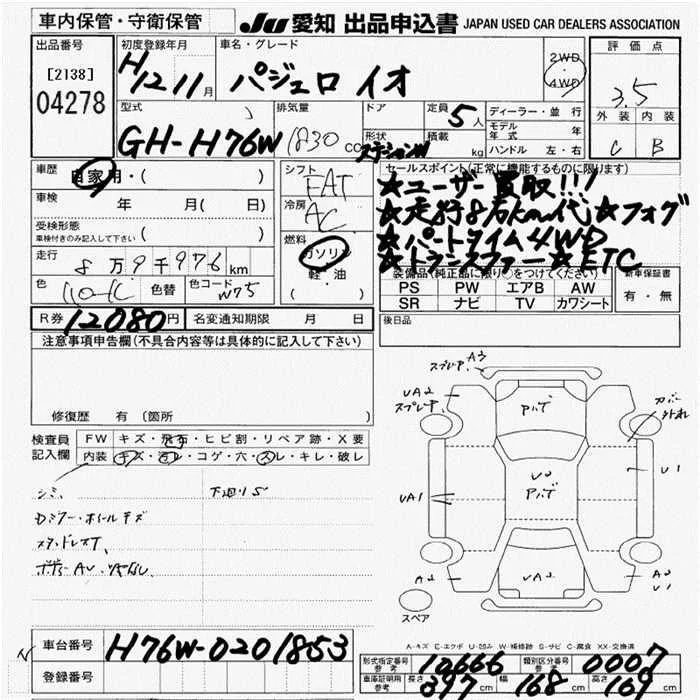 車内保管・守衛保管 JU 愛知 出品申込書 JAPAN USED CAR DEALERS ASSOCIATION
出品番号 [2138] 04278
初度登録年月 H12 11月
車名・グレード パジェロ イオ
2WD・4WD
評価点 3.5
外装 内装
C B
型式 GH-H76W
排気量 1830 cc
ドア 形状 ステーションW
定員 5人
積載 kg
ディーラー・並行
モデル年式 年
ハンドル 左・右
車歴 自家用・( )
車検 年 月( 日)
受検形態
車検付きのみ記入して下さい ( )
走行 8万9千976km
色 色替 色コード W75
シフト FAT
冷房 AC
燃料 ガソリン
軽・油
( )
セールスポイント(正常に機能するものに限ります)
★ユーザー買取!!!
★走行8万km代★フォグ
★パートタイム4WD
★トランスファー★ETC
装備品(純正品に限り○をつけてください)
PS PW エアB AW
SR ナビ TV カワシート
新車保証書
有・無
R券 12080円 名変通知期限 月 日
後日品
注意事項申告欄(不具合内容等は具体的に記入して下さい)
修復歴 有 〔箇所 〕
検査員記入欄
FW キズ・飛石・ヒビ割・リペア跡・X要
内装 キズ・汚レ・コゲ・穴・スレ・キレ・破レ
シミ、
スタッドレスT、
スプレ中 A3
UA2
スプレ中
カバー外れ
UA1
U1
A2
UA2
スペア
A-キズ E-エクボ U-凹み W-補修跡 S-サビ C-腐食 XX-交換済
車台番号 H76W-0201853
登録番号
形式指定番号 参考 10666 類別区分番号 参考 0007
車庫証明用 参考 長さ 397cm 幅 168cm 高さ 169cm